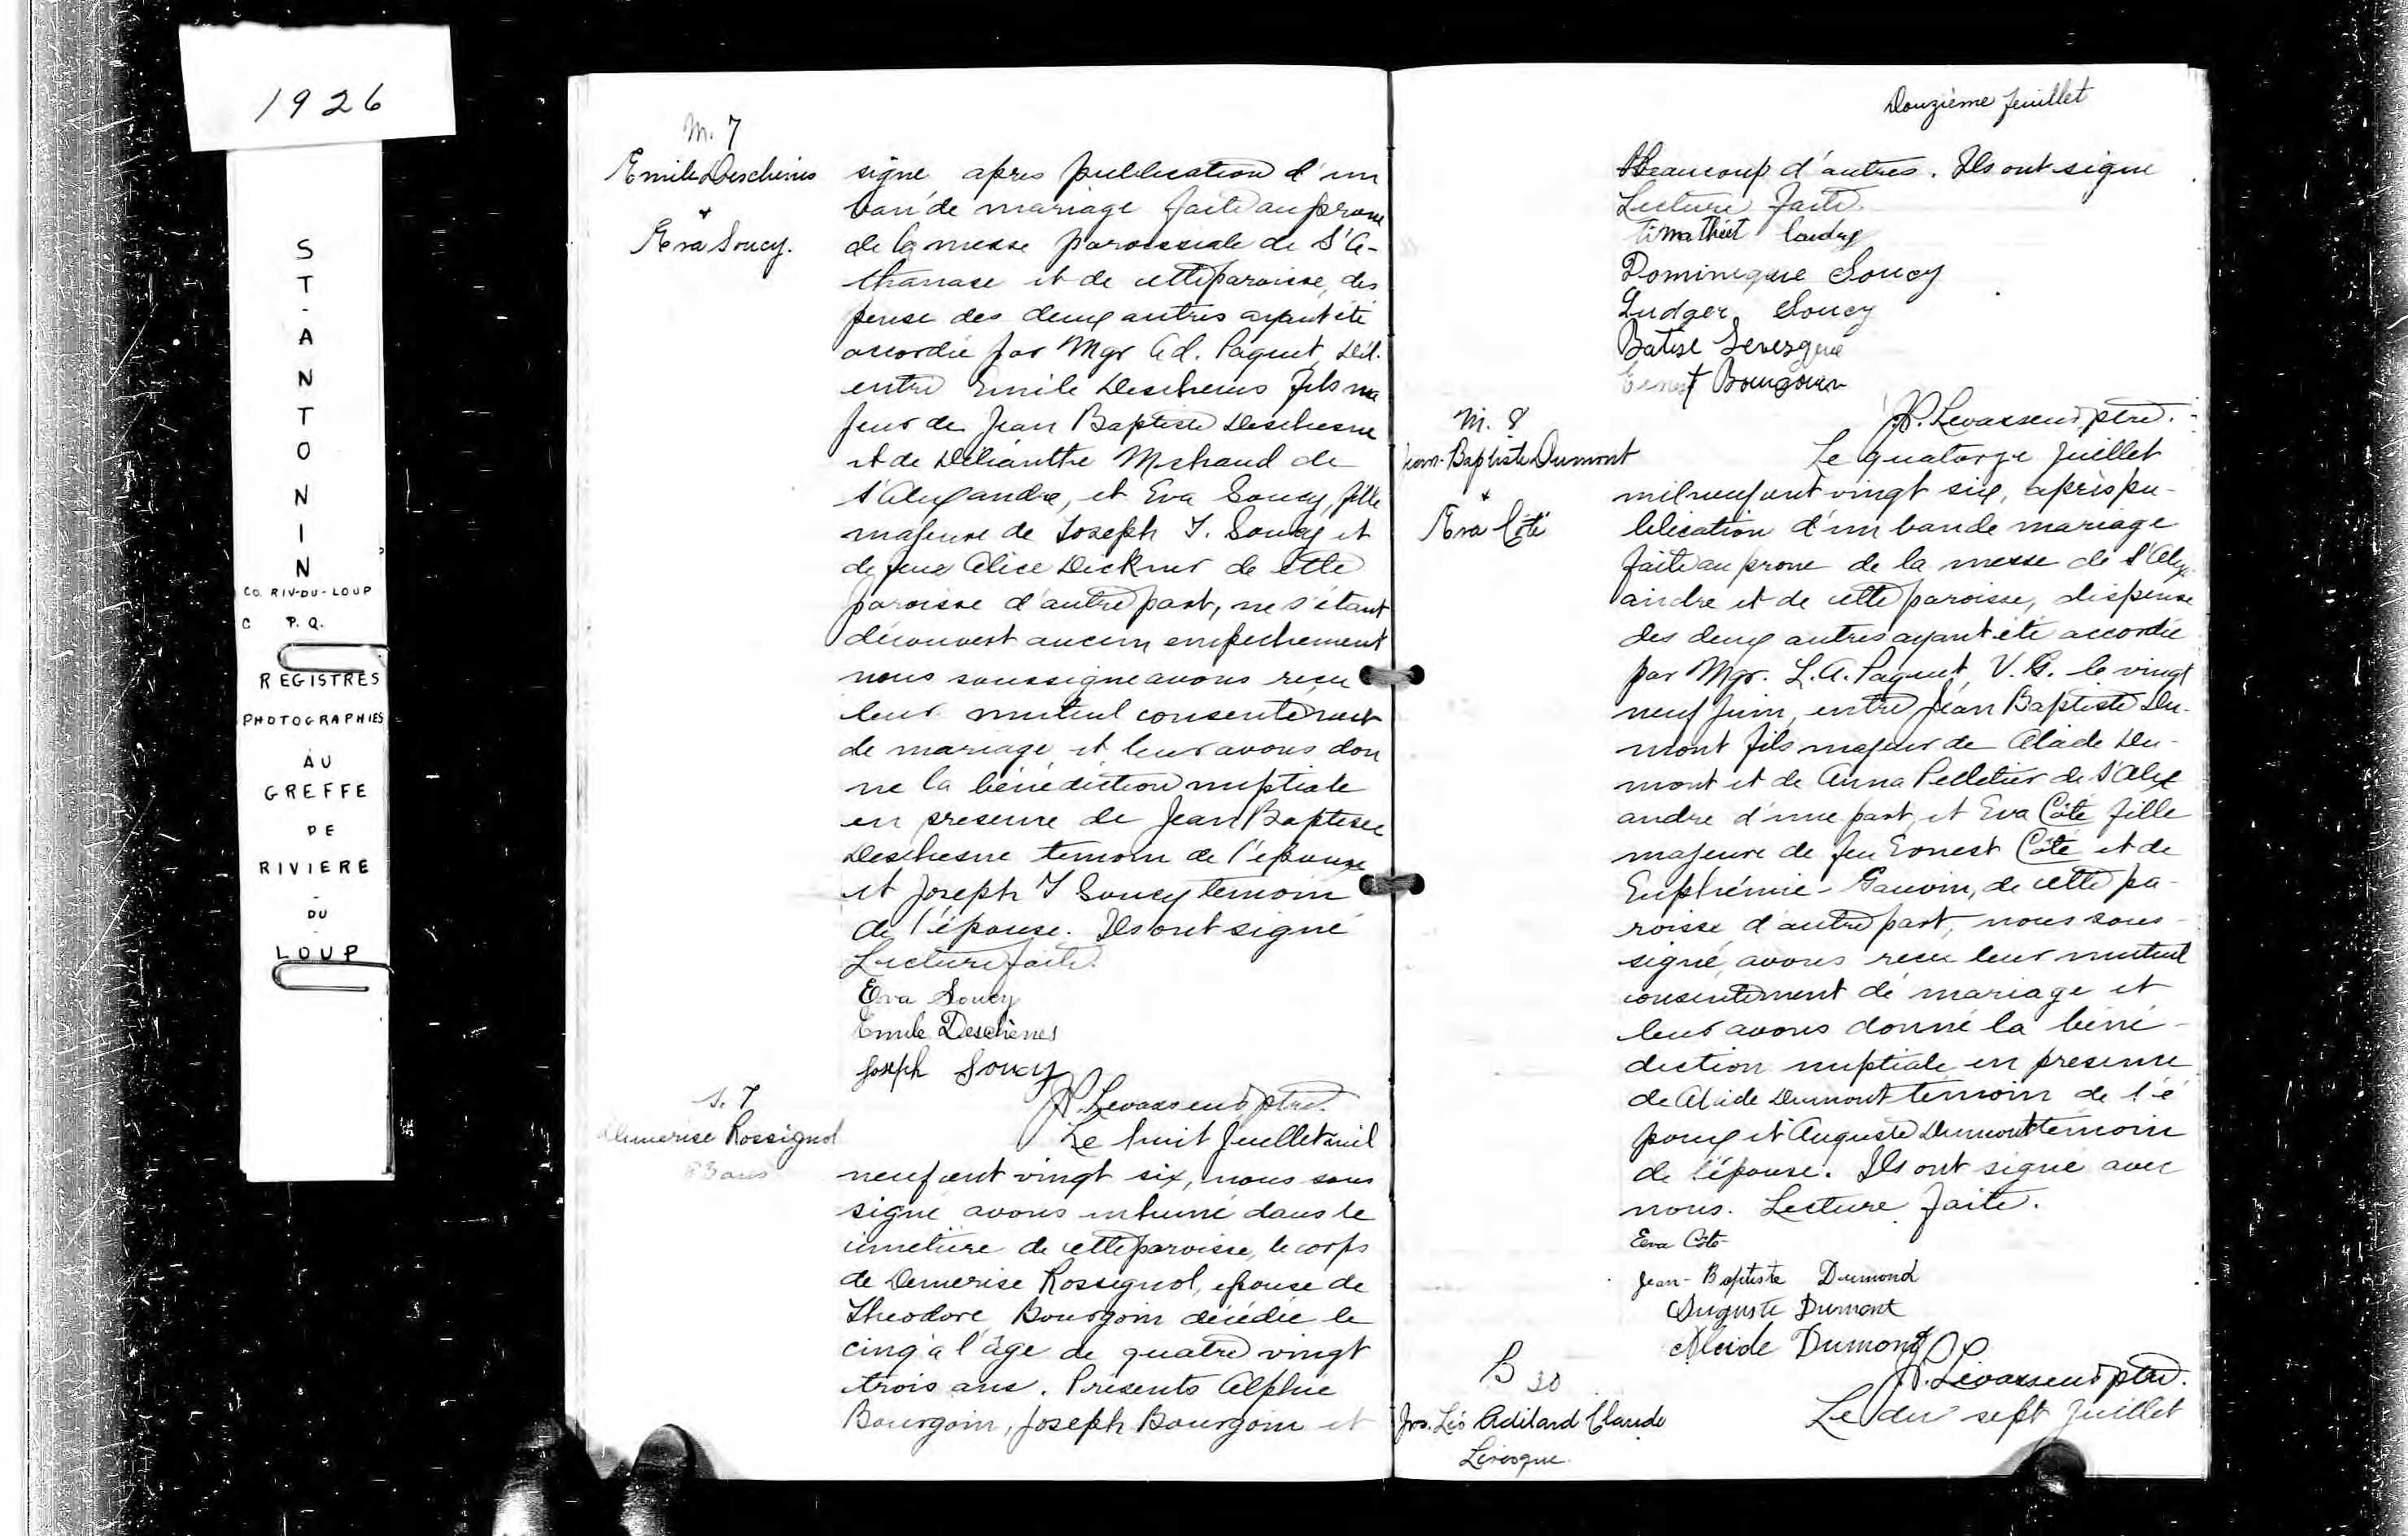 1926
S
T
-
A
N
T
O
N
I
N
CO. RIV-DU-LOUP
C P.Q.
REGISTRES
PHOTOGRAPHIES
AU
GREFFE
DE
RIVIERE
-
DU
-
LOUP
M. 7
Emile Deschènes
+
Eva Soucy.
signé, apres publication d'un
ban de mariage faite au prone
de la messe paroissiale de St A-
thanase et de cette paroisse, dis
pense des deux autres ayant été
accordée par Mgr Ad. Paquet, Dél.
entre Emile Deschenes fils ma
jeur de Jean Baptiste Deschesne
et de Délianthe Michaud de
St Alexandre, et Eva Soucy, fille
majeure de Joseph T. Soucy et
de feue Alice Dickner de cette
paroisse d'autre part, ne s'étant
découvert aucun empechement
nous soussigne avons recu
leur mutuel consentement
de mariage et leur avons don
ne la bénédiction nuptiale
en presence de Jean Baptiste
Deschesne temoin de l'epoux
et Joseph T Soucy temoin
de l'épouse. Ils ont signé
Lecture faite.
Eva Soucy
Emile Deschènes
Joseph Soucy
J.P. Levasseur ptre.
S. 7
Demerise Rossignol
83 ans
Le huit Juillet mil
neuf cent vingt six, nous sous
signé avons inhumé dans le
cimetière de cette paroisse, le corps
de Demerise Rossignol, epouse de
Theodore Bourgoin décédée le
cinq à l'âge de quatre vingt
trois ans. Présents Alphée
Bourgoin, Joseph Bourgoin et
Douzième feuillet
Beaucoup d'autres. Ils ont signe
Lecture faite.
Dominique Soucy
Ludger Soucy
Batise Levesque
Ernest Bourgoin
J.P. Levasseur ptre.
M. 8
Jean-Baptiste Dumont
+
Eva Côté
Le quatorze Juillet
mil neuf cent vingt six, après pu-
blication d'un ban de mariage
faite au prone de la messe de St Alex
andre et de cette paroisse, dispense
des deux autres ayant été accordée
par Mgr. L.A. Paquet, V.G. le vingt
neuf juin, entre Jean Baptiste Du-
mont fils majeur de Alcide Du-
mont et de Anna Pelletier de St Alex
andre d'une part, et Eva Côté fille
majeure de feu Ernest Côté et de
Euphémie Gauvin, de cette pa-
roisse d'autre part, nous sous-
signé, avons recu leur mutuel
consentement de mariage et
leur avons donné la béné-
diction nuptiale en presence
de Alcide Dumont temoin de l'é
poux et Auguste Dumont témoin
de l'épouse. Ils ont signé avec
nous. Lecture faite.
Eva Côté
Jean-Baptiste Dumond
Auguste Dumont
Alcide Dumond
J.P. Levasseur ptre.
B 30
Jos. Léo Adélard Claude
Lévesque.
Le dix sept Juillet